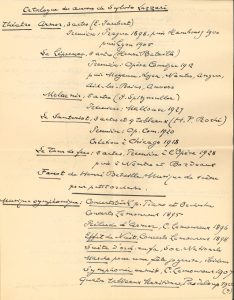 Catalogue des œuvres de Sylvio Lazzari
Théâtre Armor, 3 actes (E. Jaubert)
Première: Prague 1898, puis Hambourg 1900
puis Lyon 1905
La Lépreuse, 3 actes (Henri Bataille)
Première: Opéra Comique 1912
puis Mayence, Lyon, Nantes, Angers,
Aix les Bains, Anvers
Melaenis, 5 actes (G. Spitzmuller)
Première: Mulhouse 1927
Le Sauteriot, 3 actes et 4 tableaux (H. P. Roché)
Première: Op. Com. 1920
Création à Chicago 1918
La Tour de feu, 3 actes, Première à l'Opéra 1928
puis à Nantes et Bordeaux
Faust de Henri Bataille: Musique de scène
pour petit orchestre
Musique symphonique: Concertstück p. Piano et Orchestre
Concerts Lamoureux 1895
Prélude d'Armor, C. Lamoureux 1896
Effet de Nuit, Concerts Lamoureux 1898
Suite d'orch. Soc. Nationale
Marche pour une fête joyeuse,
Symphonie C. Lamoureux 1907
Quatre tableaux maritimes, Pasdeloup 1920